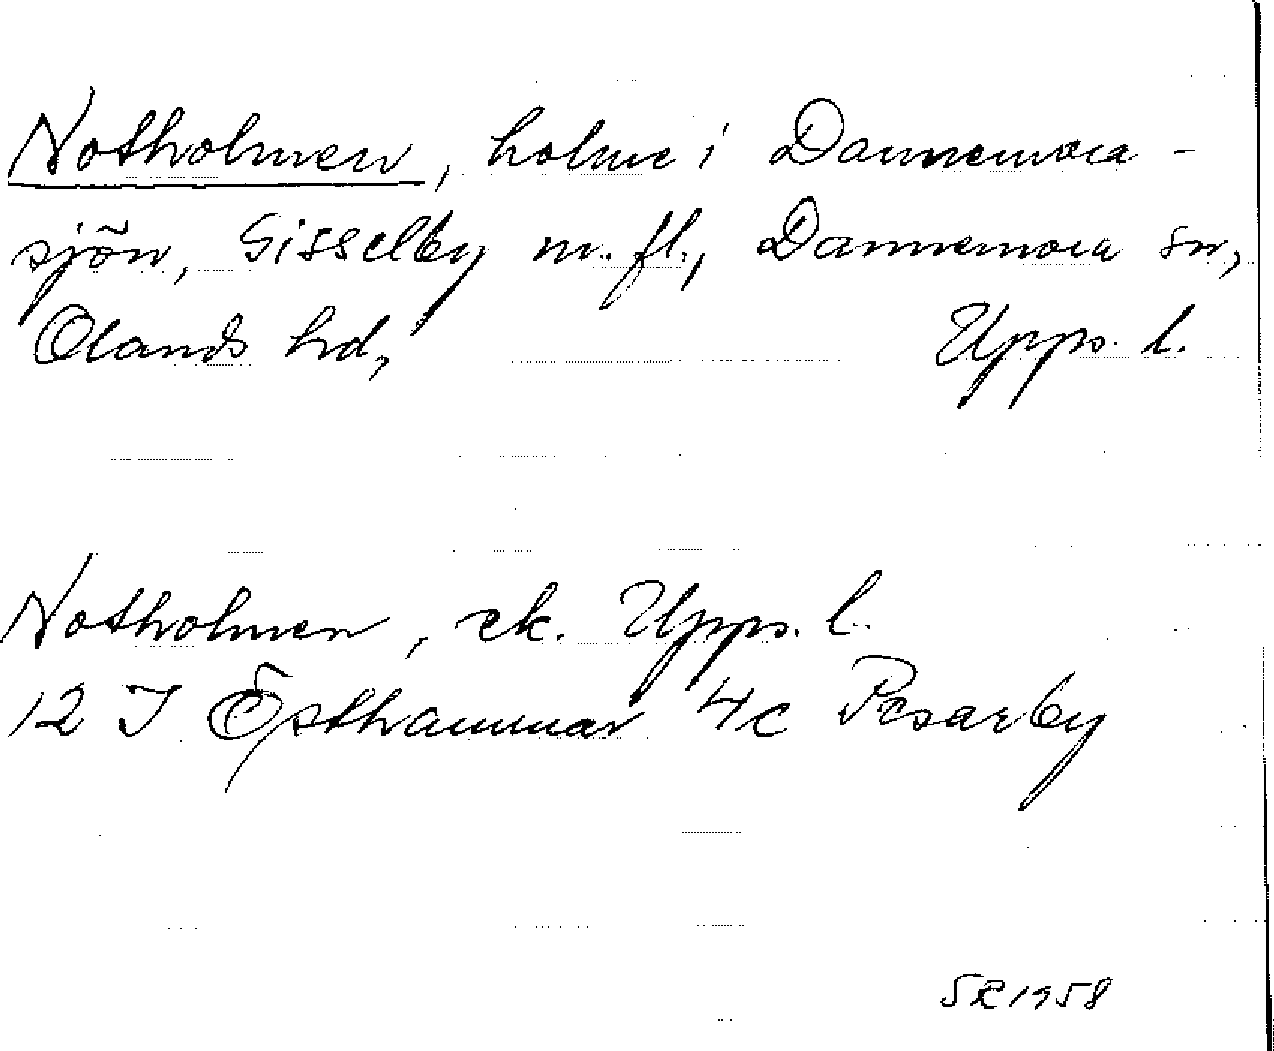 Notholmen, holme i Dannemora-
sjön, Gisselby m. fl., Dannemora sn,
Olands hd, Upps. l.
Notholmen, ek. Upps. l.
12 I Östhammar 4c Pesarby
SR 1958